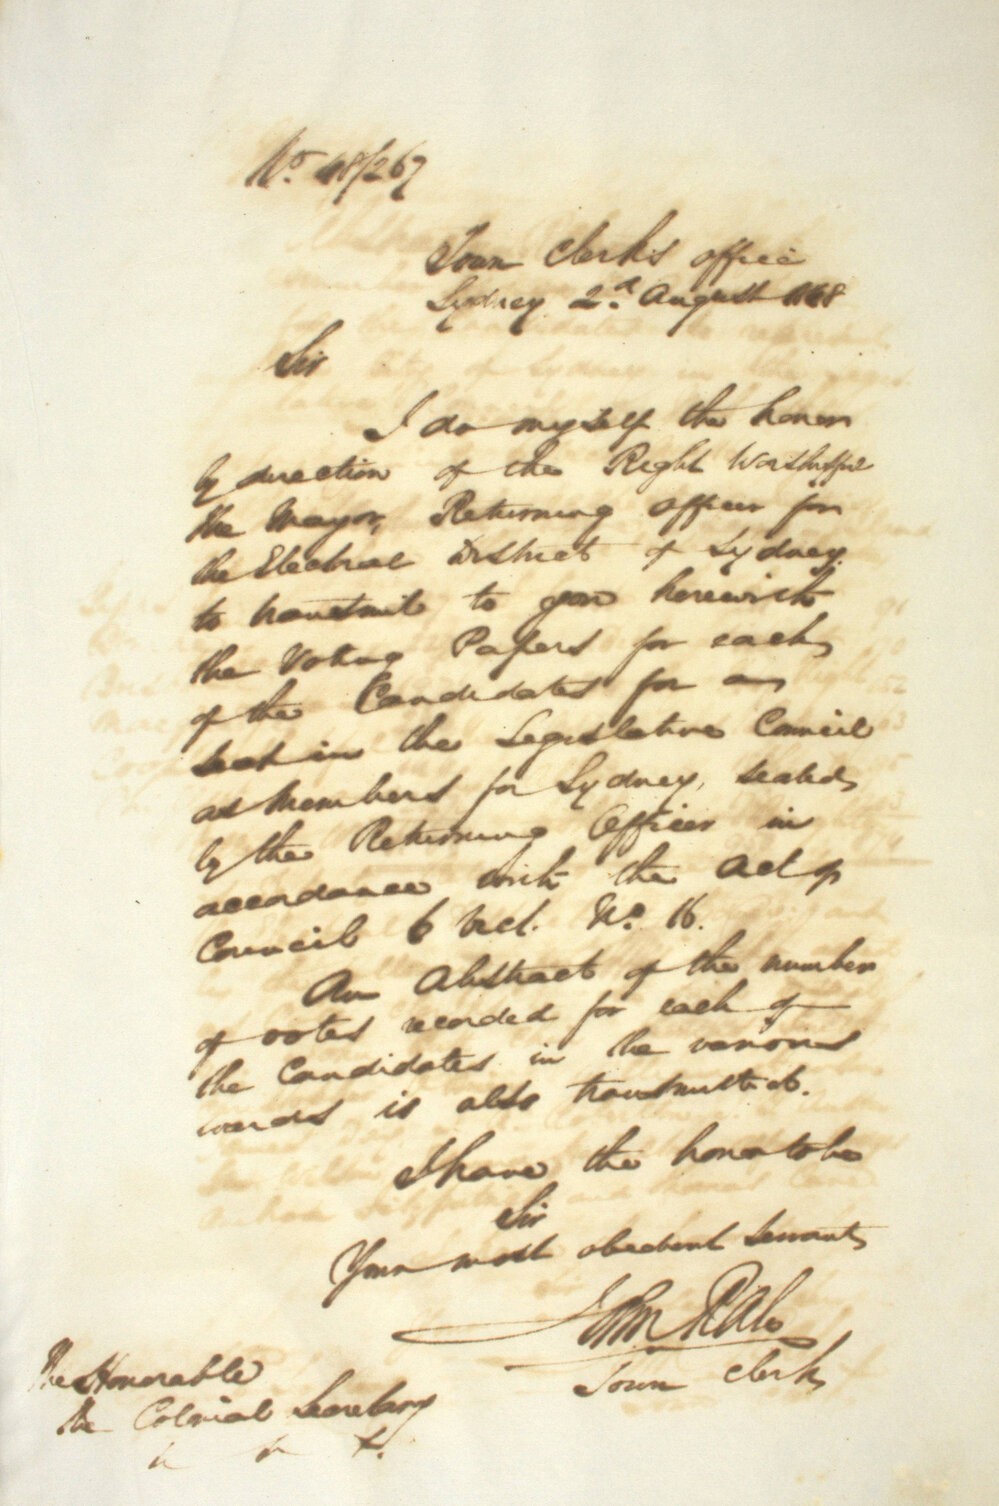 No. 48/267
Town Clerk's office
Sydney 2d. August 1848
Sir
I do myself the honor
by direction of the Right Worshipful
the Mayor, Returning officer for
the Electoral District of Sydney
to transmit to you herewith
the Voting Papers for each
of the Candidates for a
seat in the Legislative Council
as Members for Sydney, sealed
by the Returning Officer in
accordance with the Act of
Council 6 Vict. No. 16.
An Abstract of the number
of votes recorded for each of
the Candidates in the various
wards is also transmitted.
I have the honor to be
Sir
Your most obedient Servant
John
Town Clerk
The Honorable
the Colonial Secretary